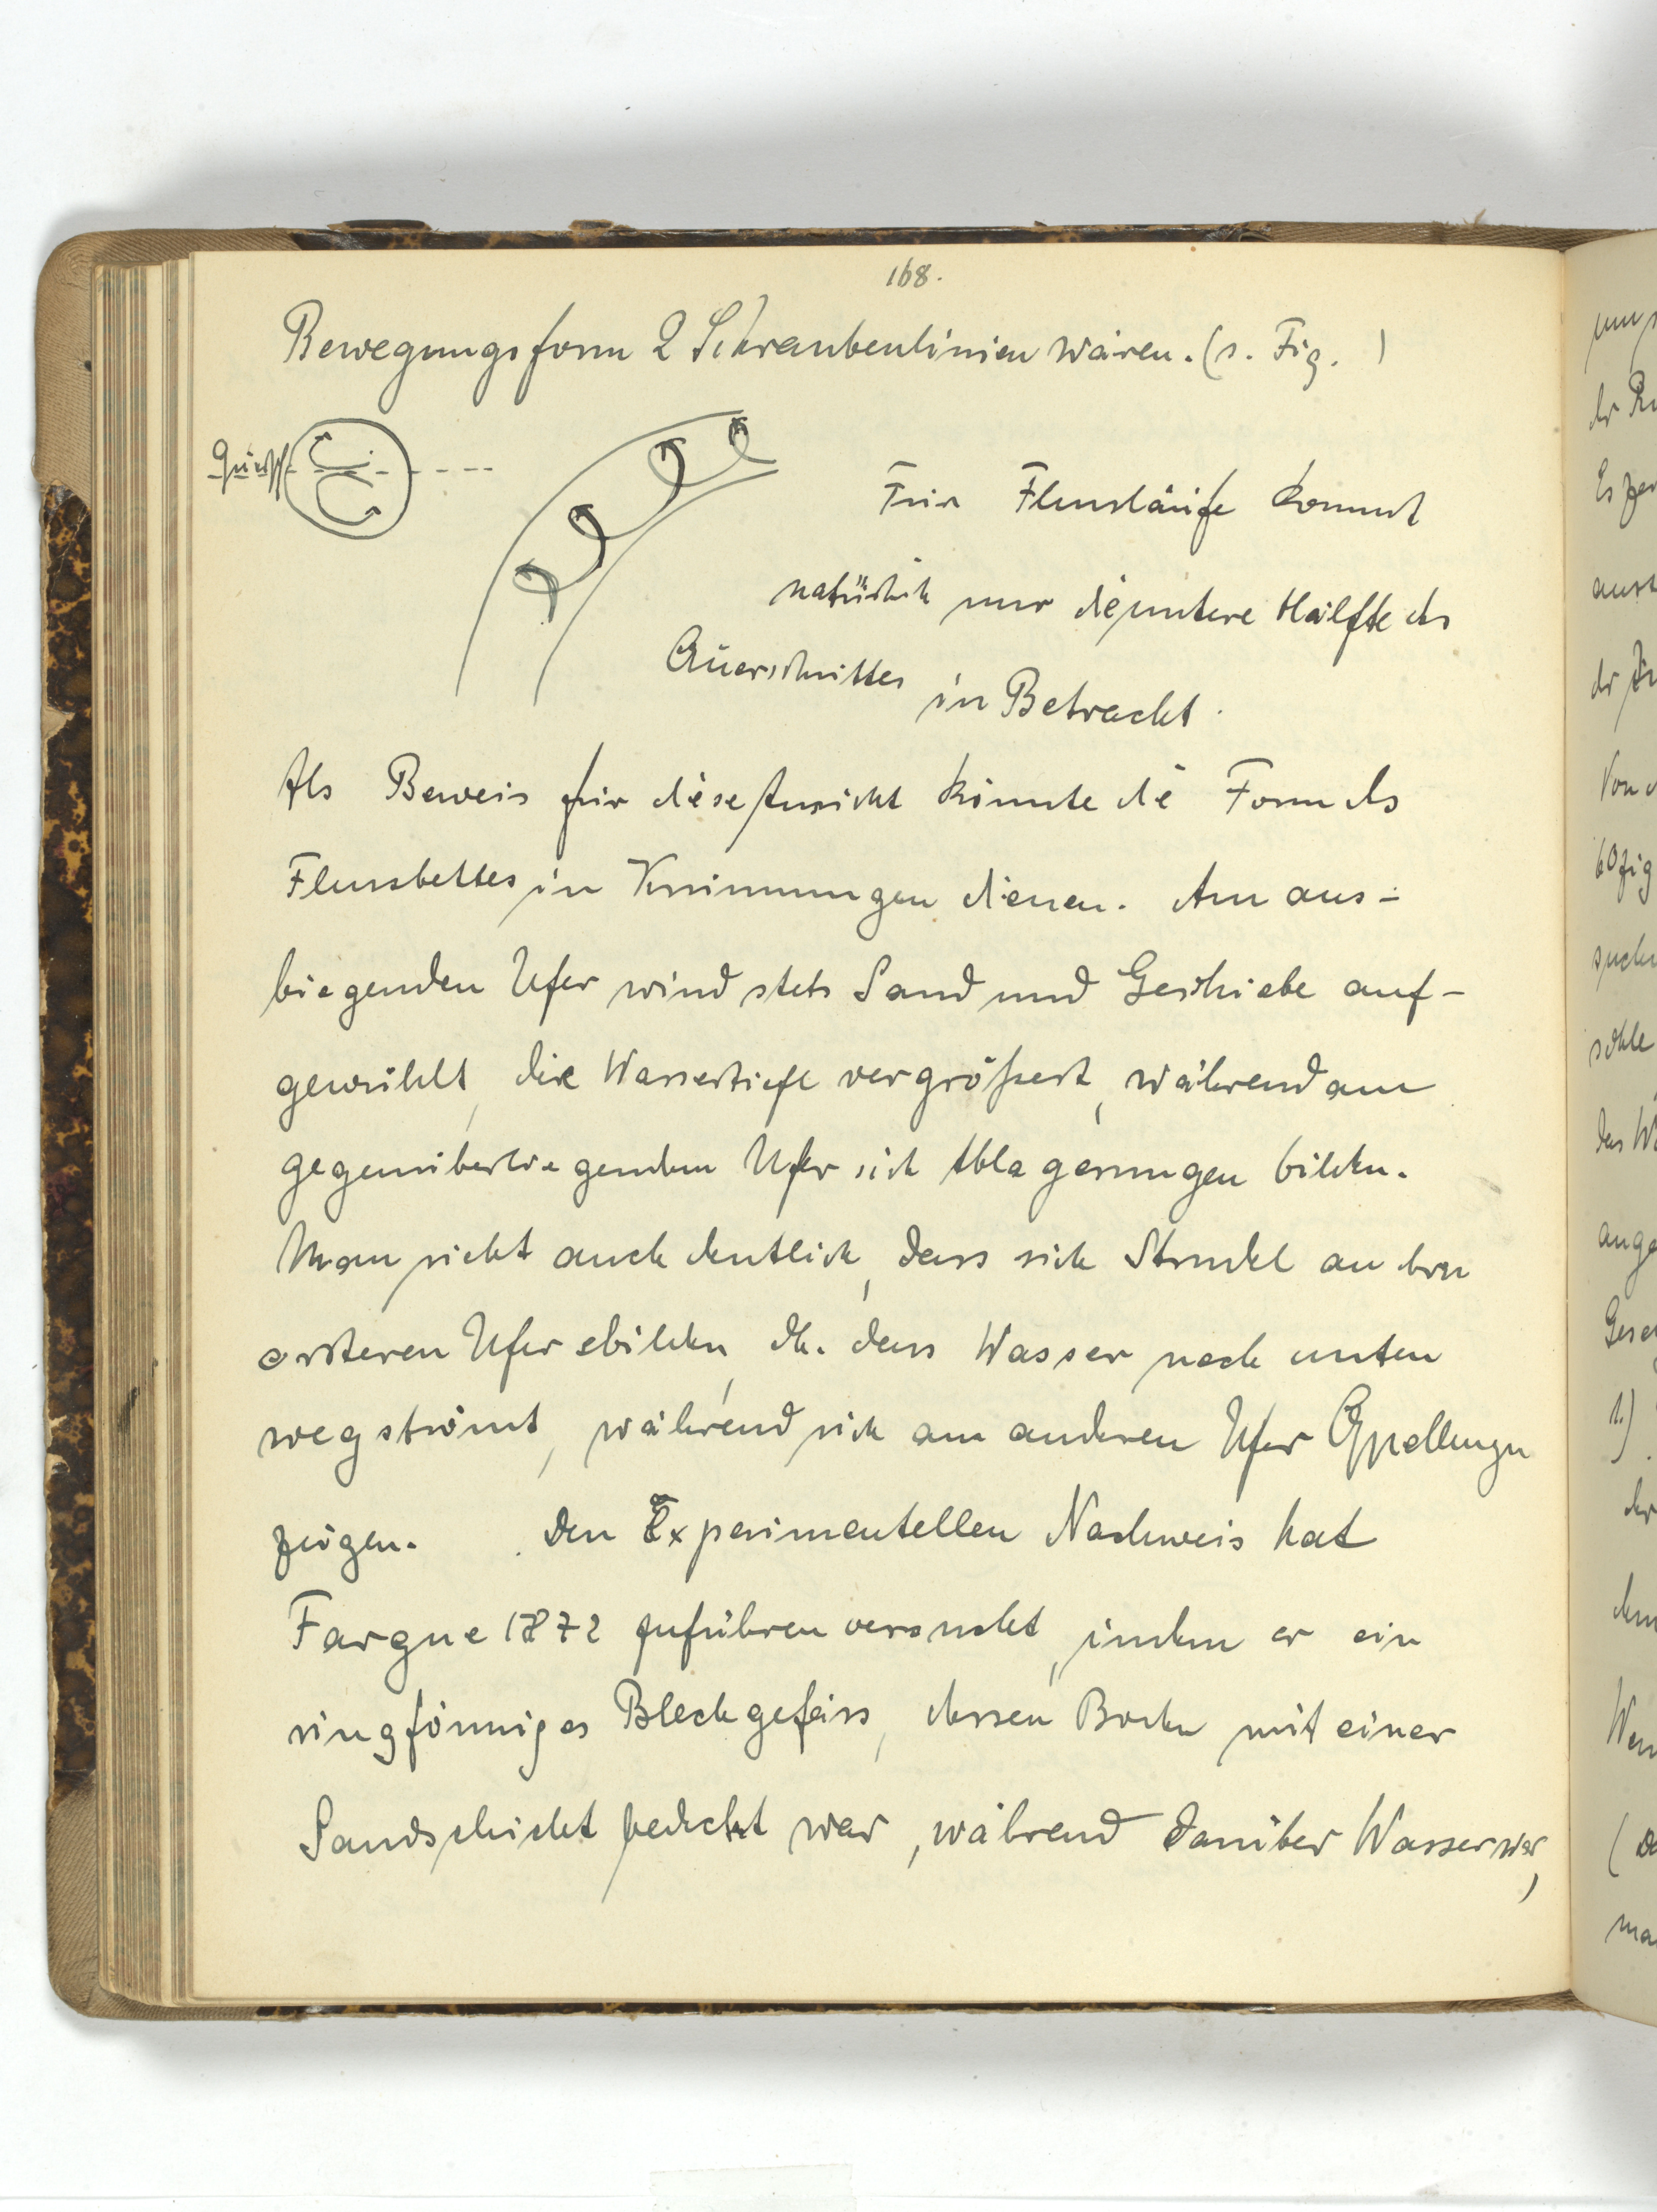 168.
Bewegungsform 2 Schraubenlinien wären. (s. Fig. )
Für Flussläufe kommt
natürlich nur die untere Hälfte des
Querschnittes in Betracht.
Als Beweis für diese Ansicht könnte die Form des
Flussbettes in Krümmungen dienen. Am aus-
biegenden Ufer wird stets Sand und Geschiebe auf-
gewühlt, die Wassertiefe vergrößert, während am
gegenüberliegenden Ufer sich Ablagerungen bilden.
Man sieht auch deutlich, dass sich Strudel an dem
ersteren Ufer bilden, dh. dass Wasser nach unten
wegströmt, während sich am anderen Ufer Quellungen
zeigen. Den Experimentellen Nachweis hat
Fargue 1872 zu führen versucht, indem er ein
ringförmiges Blechgefäss, dessen Boden mit einer
Sandschicht bedeckt war, während darüber Wasser war,
um
der
Es
aust
der
Von
suche
sohle
des
ange
1.)
der
dem
(
ma